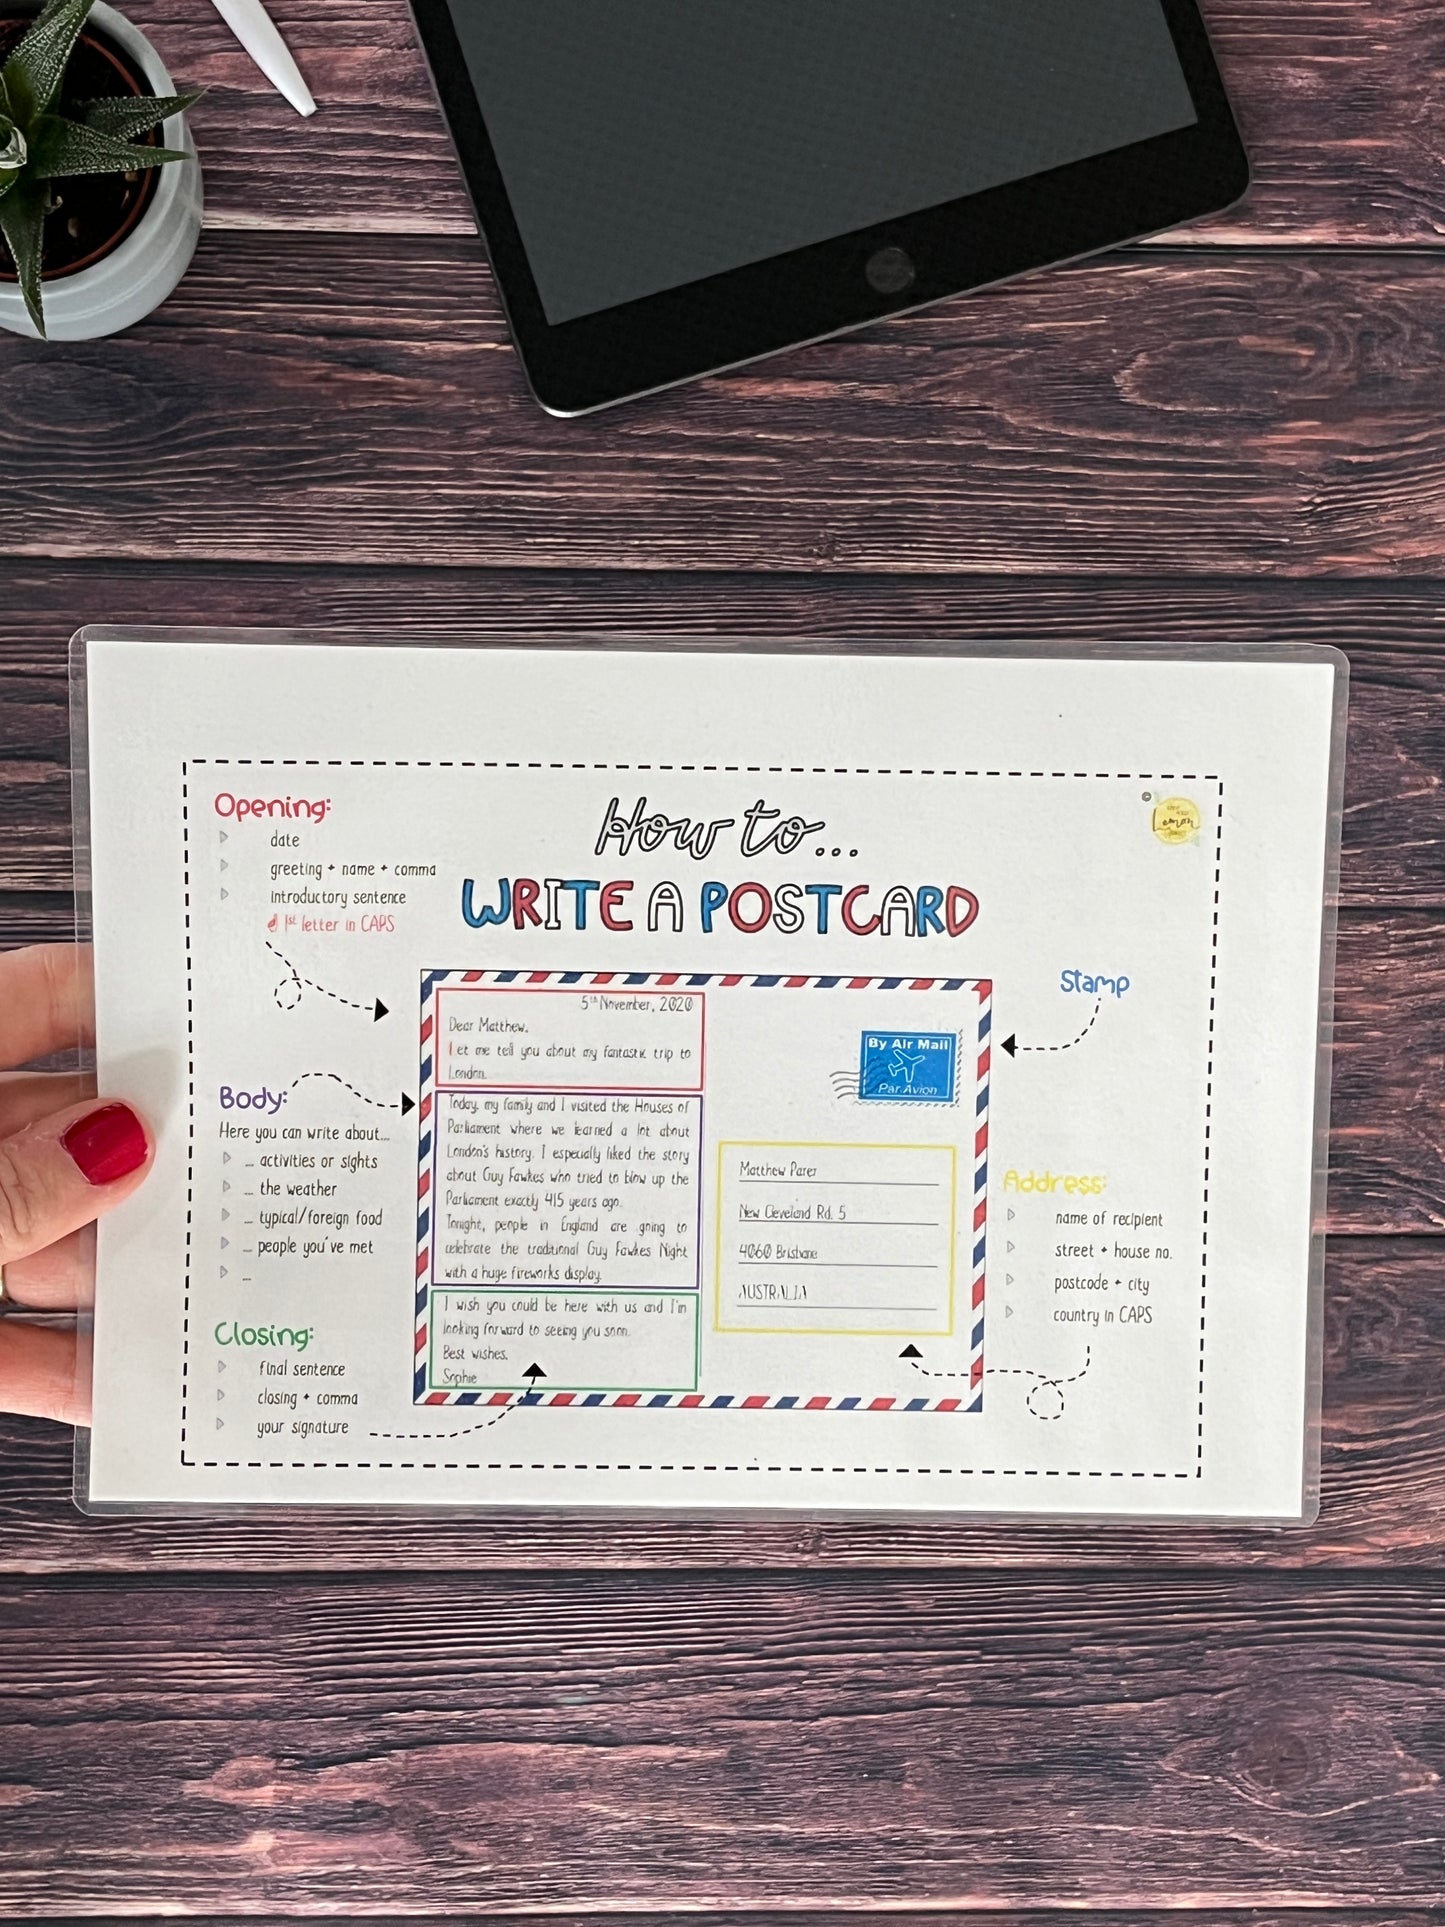 How to...
WRITE A POSTCARD
Opening:
date
greeting + name + comma
introductory sentence
1st letter in CAPS
Body:
Here you can write about...
... activities or sights
... the weather
... typical/foreign food
... people you've met
...
Closing:
final sentence
closing + comma
your signature
5th November, 2020
Dear Matthew,
Let me tell you about my fantastic trip to
London.
Today, my family and I visited the Houses of
Parliament where we learned a lot about
London's history. I especially liked the story
about Guy Fawkes who tried to blow up the
Parliament exactly 415 years ago.
Tonight, people in England are going to
celebrate the traditional Guy Fawkes Night
with a huge fireworks display.
I wish you could be here with us and I'm
looking forward to seeing you soon.
Best wishes,
Sophie
By Air Mail
Par Avion
Matthew Parer
New Cleveland Rd. 5
4060 Brisbane
AUSTRALIA
Stamp
Address:
name of recipient
street + house no.
postcode + city
country in CAPS
©